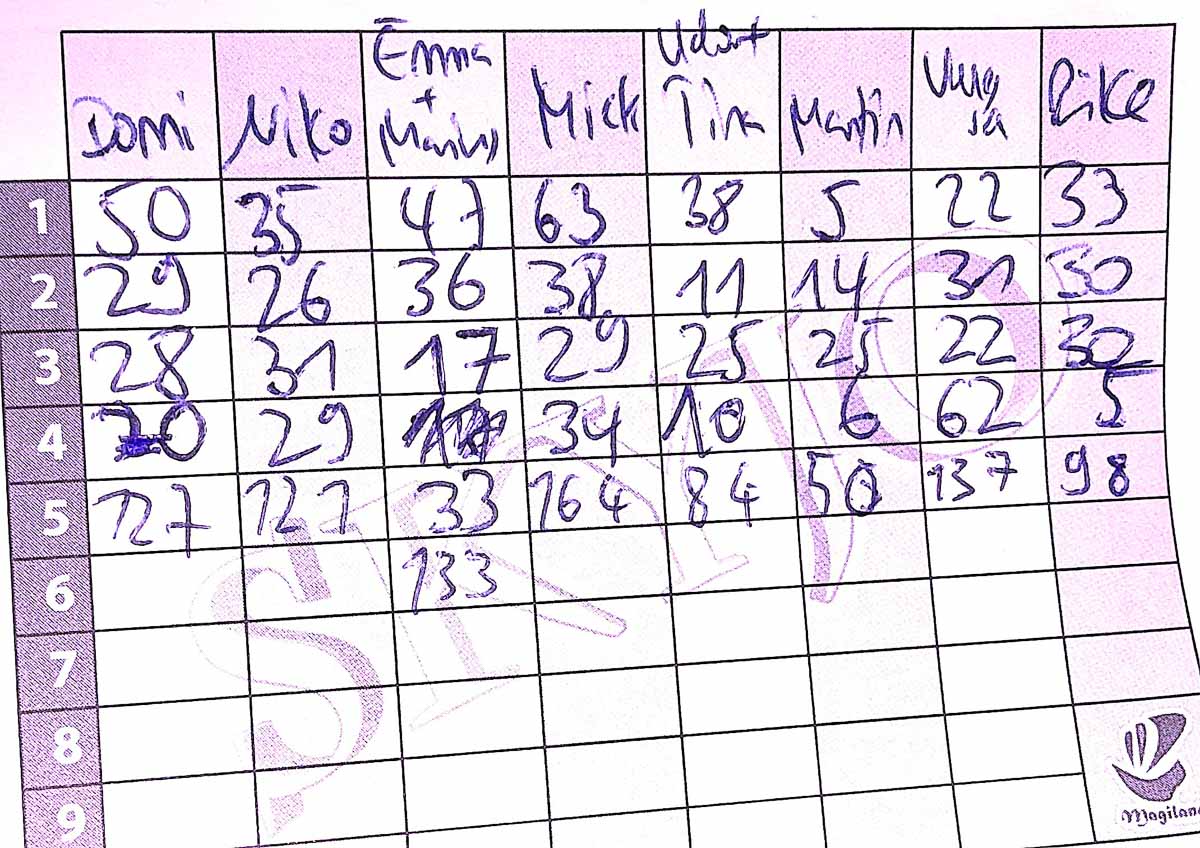 Domi Niko Emma + Marius Mick Udo + Tina Martin Rike
1 50 35 47 63 38 5 22 33
2 29 26 36 38 11 14 31 30
3 28 31 17 29 25 25 22 30
4 20 29 34 10 6 62 5
5 127 121 33 164 84 50 137 98
6 133
7
8
9
SKYJO
Magilano